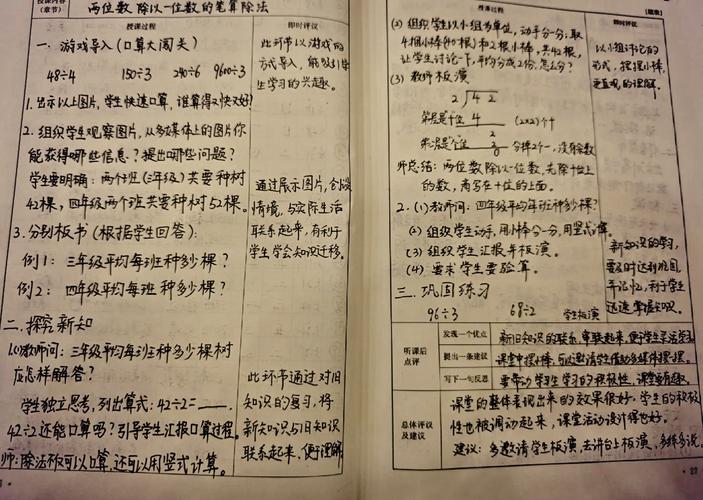 授课内容
(章节)
两位数除以一位数的笔算除法
授课过程
即时评议
一、游戏导入(口算大闯关)
48÷4 150÷3 240÷6 9600÷3
1.出示以上图片,学生快速口算,谁算得又快又好
2.组织学生观察图片,从多媒体上的图片你
能获得哪些信息?提出哪些问题?
学生要明确:两个班(三年级)共要种树
42棵,四年级两个班共要种树52棵。
3.分别板书(根据学生回答):
例1:三年级平均每班种多少棵?
例2:四年级平均每班种多少棵?
二、探究新知
(1)教师问:三年级平均每班种多少棵树
应怎样解答?
学生独立思考,列出算式:42÷2=
42÷2还能口算吗?引导学生汇报口算过程。
师:除法不仅可以口算,还可以用竖式计算。
此环节以游戏的
方式导入,能吸引学
生学习的兴趣。
通过展示图片,创设
情境,与实际生活
联系起来,有利于
学生学会知识迁移。
此环节通过对旧
知识的复习,将
新知识与旧知识
联系起来,便于理解
授课过程
即时评议
(2)组织学生以小组为单位,动手分一分:取
4捆小棒(40根)和2根小棒,共42根,
让学生讨论一下,平均分成2份,怎么分?
(3)教师板演
2 4 2
十位 4 (2×2)个十
2
个位 2 分掉2个一,没有余数
师总结:两位数除以一位数,先除十位上
的数,商写在十位的上面。
2.(1)教师问:四年级平均每班种多少棵?
(2)组织学生动手,用小棒分一分,用竖式算。
(3)组织学生汇报并板演。
(4)要求学生要验算。
三、巩固练习
96÷3 68÷2 学生板演
以小组讨论的
形式,摆摆小棒,
更直观的理解。
新知识的学习,
要及时达到巩固,
牢记忆,利于学生
迅速掌握知识。
听课后
点评
发现一个优点
新旧知识的联系,串联起来,便于学生
提出一条建议
课堂中摆小棒,可以邀请学生借助多媒体摆一摆。
写下一句反思
要带动学生学习的积极性,课堂要有趣。
总体评议
及建议
课堂的整体表现出来的效果很好,学生的积极
性也被调动起来,课堂活动设计得也好。
建议:多邀请学生板演,去讲台上板演,多练多说。